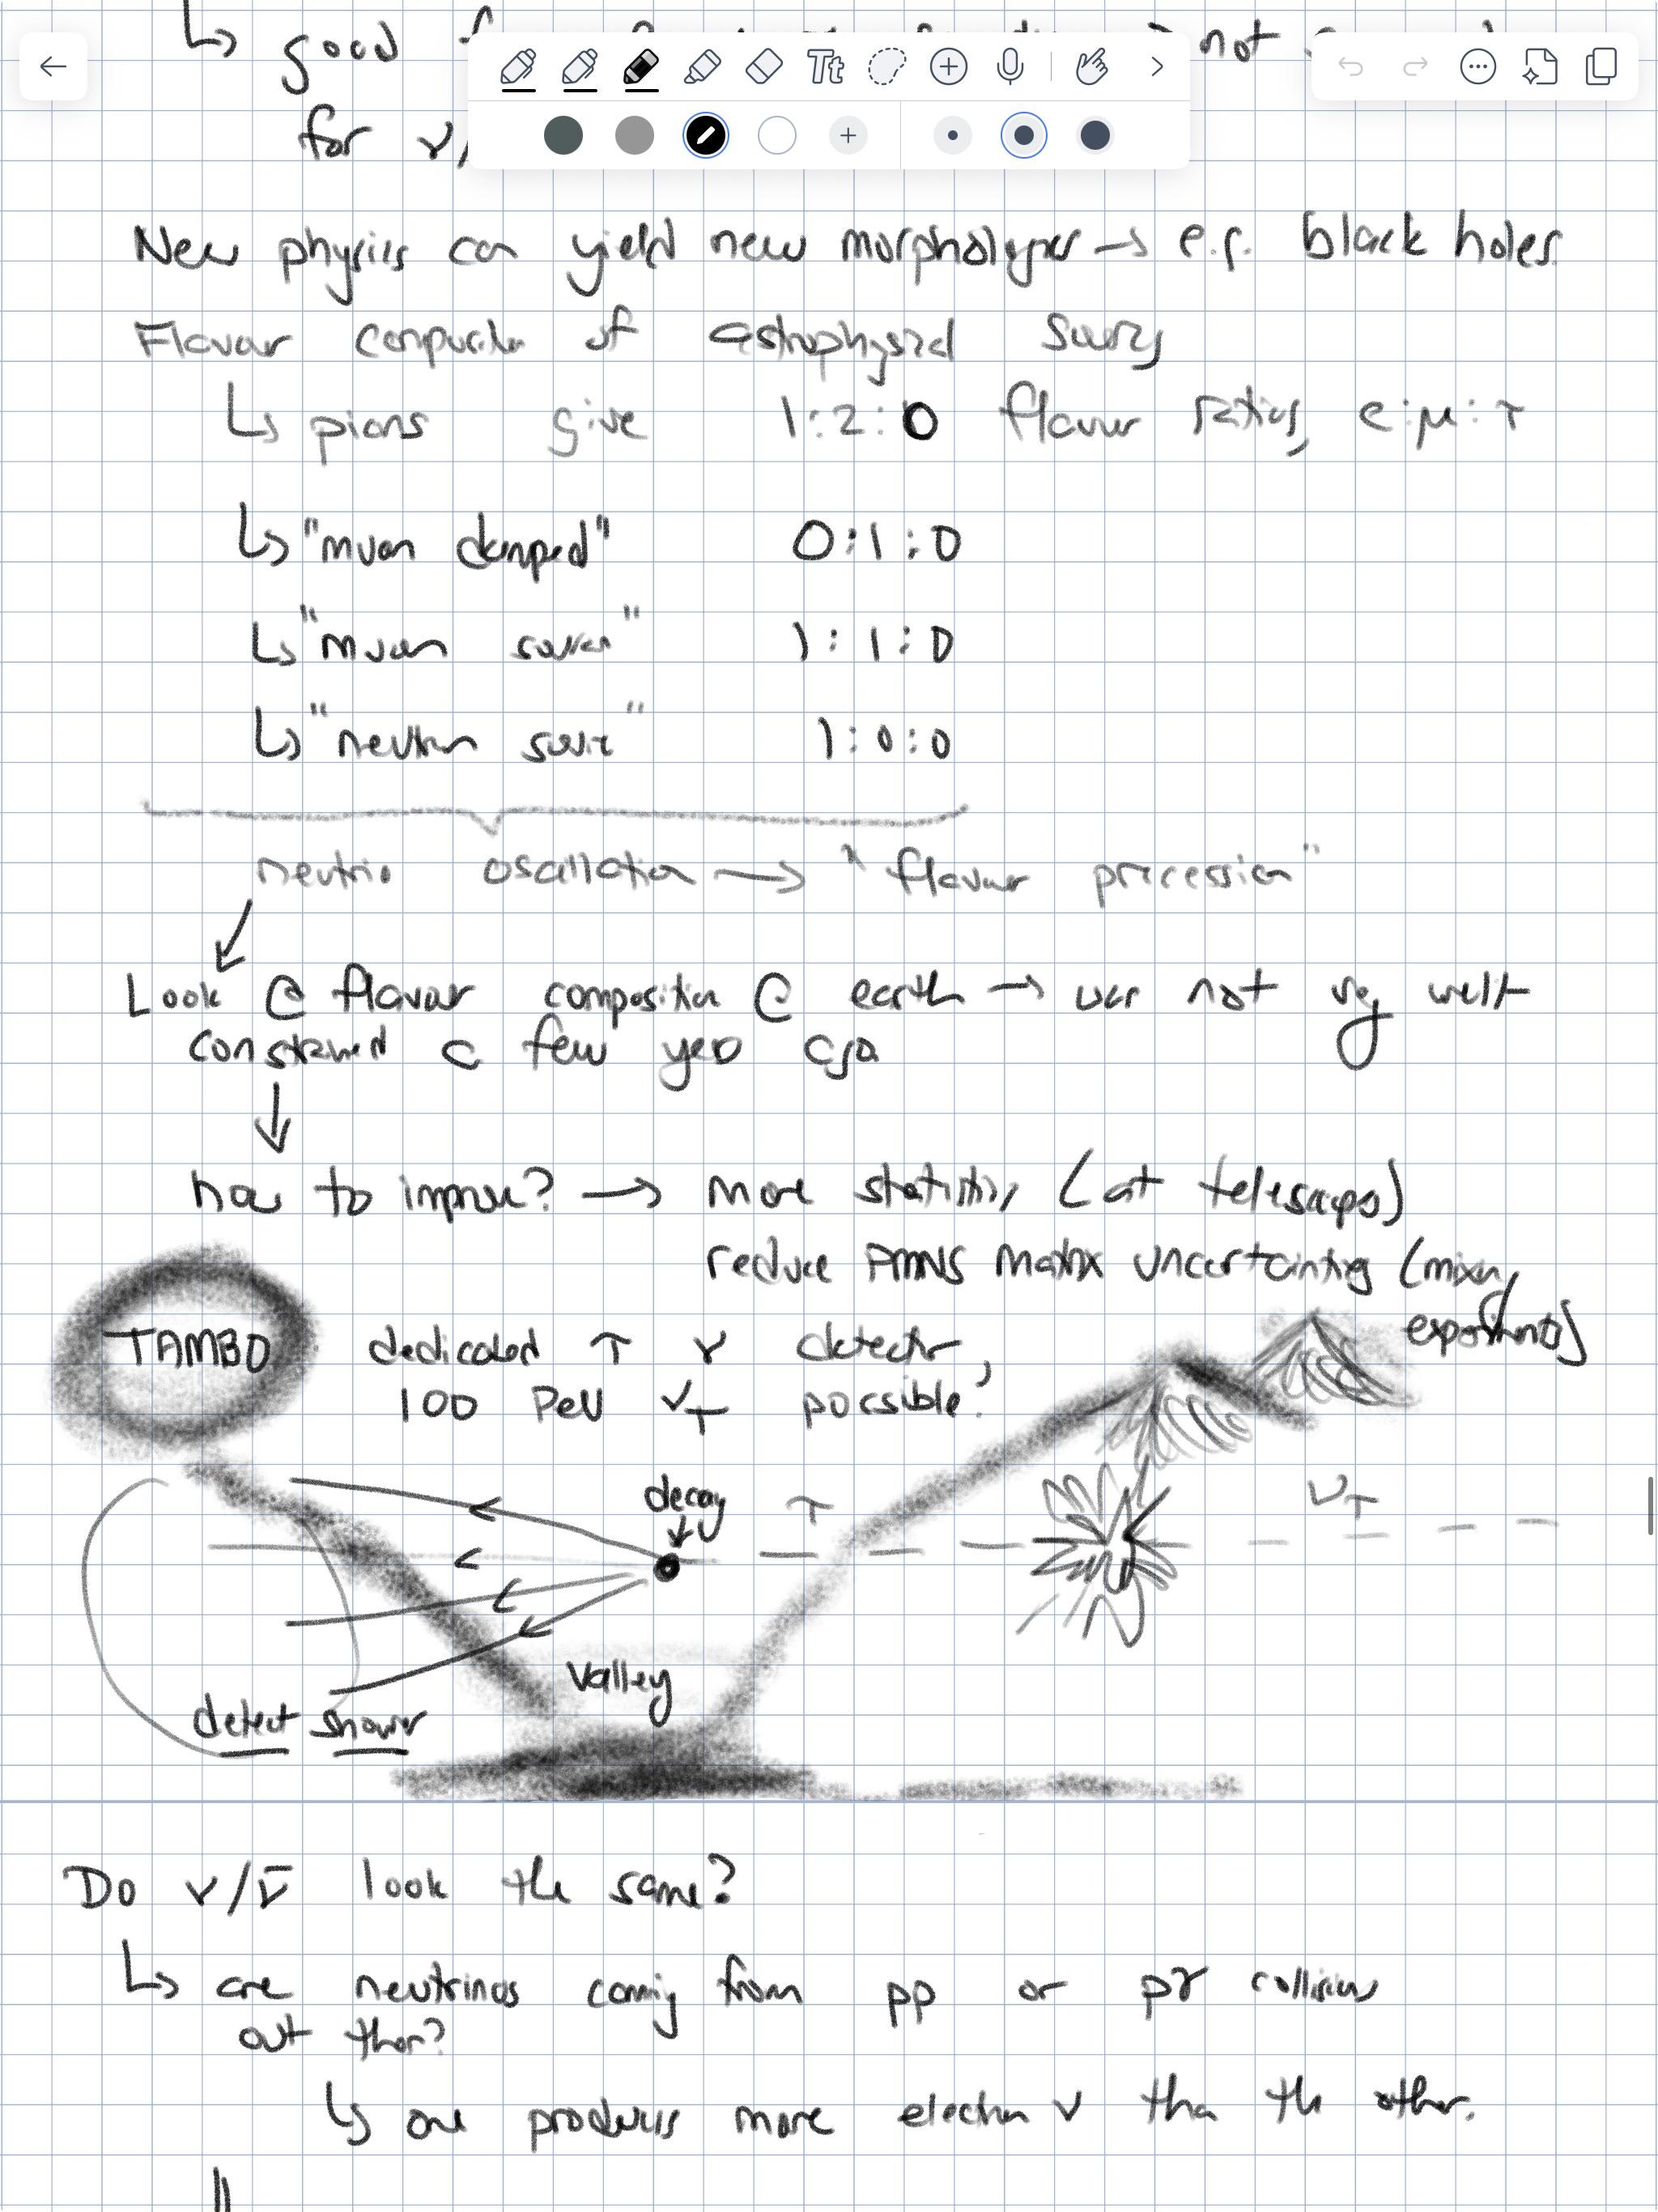 ↳ good not
for ν/
Tt
New physics can yield new morphologies → e.g. black holes.
Flavour of astrophysical
↳ pions give 1:2:0 flavour ratios, e:μ:τ
↳ "muon damped" 0:1:0
↳ "muon source" 1:1:0
↳ "neutron source" 1:0:0
neutrio oscillation → "flavour precession"
Look @ flavour composition @ earth → was not very well
constrained a few years ago
how to improve? → more statistics (at telescopes)
reduce PMNS matrix uncertainties (mixing
experiments)
TAMBO dedicated τ ν detector,
100 PeV ντ possible?
decay τ ντ
valley
detect shower
Do ν/ν̄ look the same?
↳ are neutrinos coming from pp or pγ collisions
out there?
↳ one produces more electron ν than the other.